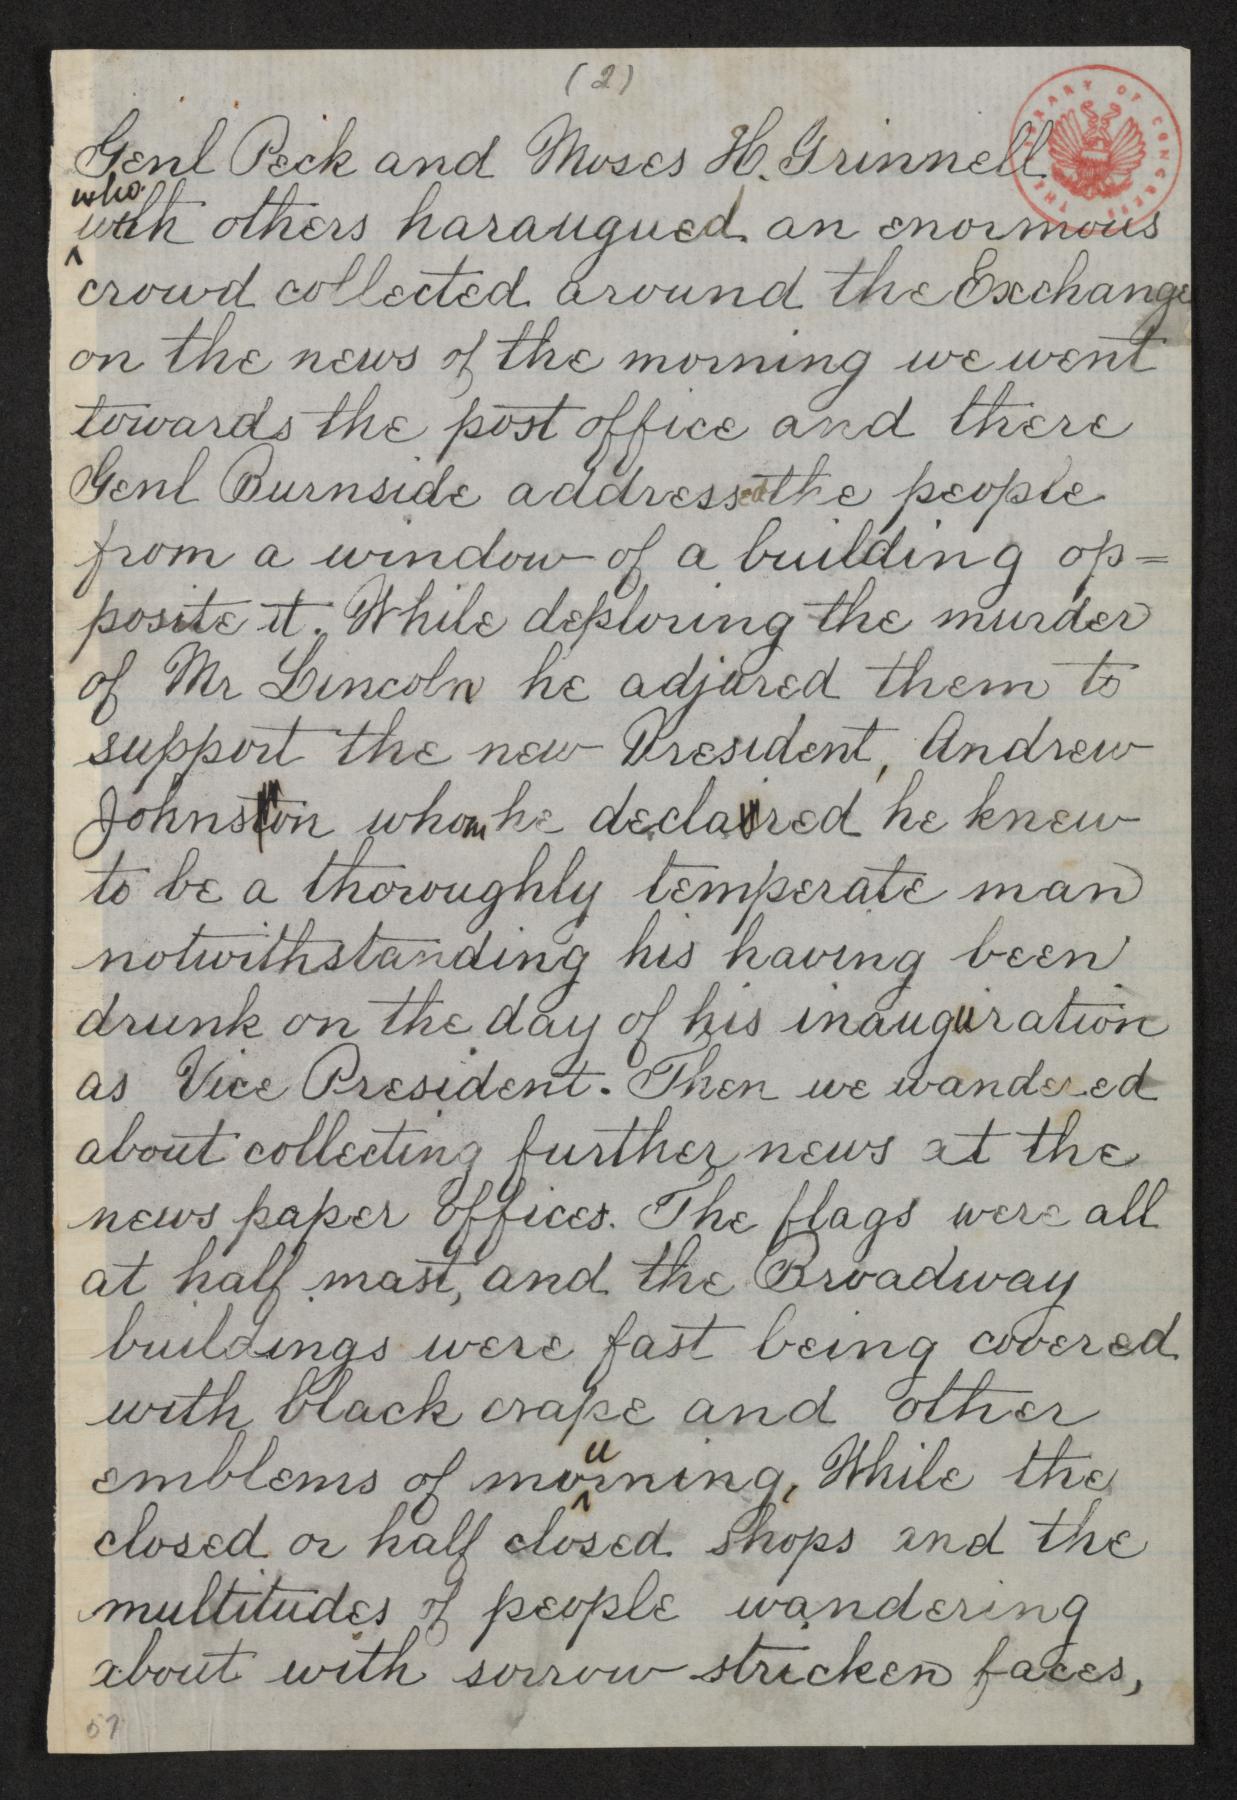 (2)
THE LIBRARY OF CONGRESS
Genl Peck and Moses H. Grinnell
who
with others haraugued an enormous
crowd collected around the Exchange
on the news of the morning we went
towards the post office and there
Genl Burnside addressed the people
from a window of a building op=
posite it. While deploring the murder
of Mr Lincoln he adjured them to
support the new President, Andrew
Johnston whom he declared he knew
to be a thoroughly temperate man
notwithstanding his having been
drunk on the day of his inauguration
as Vice President. Then we wandered
about collecting further news at the
news paper offices. The flags were all
at half mast, and the Broadway
buildings were fast being covered
with black crape and other
u
emblems of morning, While the
closed or half closed shops and the
multitudes of people wandering
about with sorrow stricken faces,
57